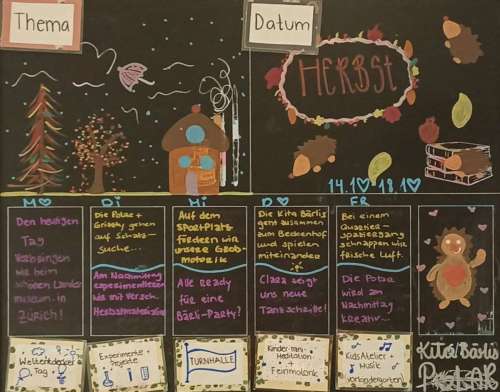 Thema
Datum
HERBST
14.10 18.10
MO
DI
MI
DO
FR
Den heutigen
Tag
verbringen
wir beim
schönen Landes
museum in
ZÜRICH!
Die Potze +
gehen
auf Schatz-
suche...
Am Nachmittag
experimentieren
wir mit versch.
Herbstmaterialien
Auf dem
SPORTPLATZ
fördern wir
unsere Grob-
motorik
Alle Ready
für eine
Bärli-Party?
Die Kita Bärlis
geht zusammen
zum Beckenhof
und spielen
miteinander
Clara zeigt
uns neue
Tanzschritte!
Bei einem
Quartier-
spaziergang
schnappen wir
frische Luft.
Die Potze
wird am
Nachmittag
kreativ...
Weltentdecker
Tag
Experimente
Projekte
TURNHALLE
Kinder-Tanz
Meditation
+
Feinmotorik
Kids Atelier
Musik
Vorkindergarten
Kita Bärlis